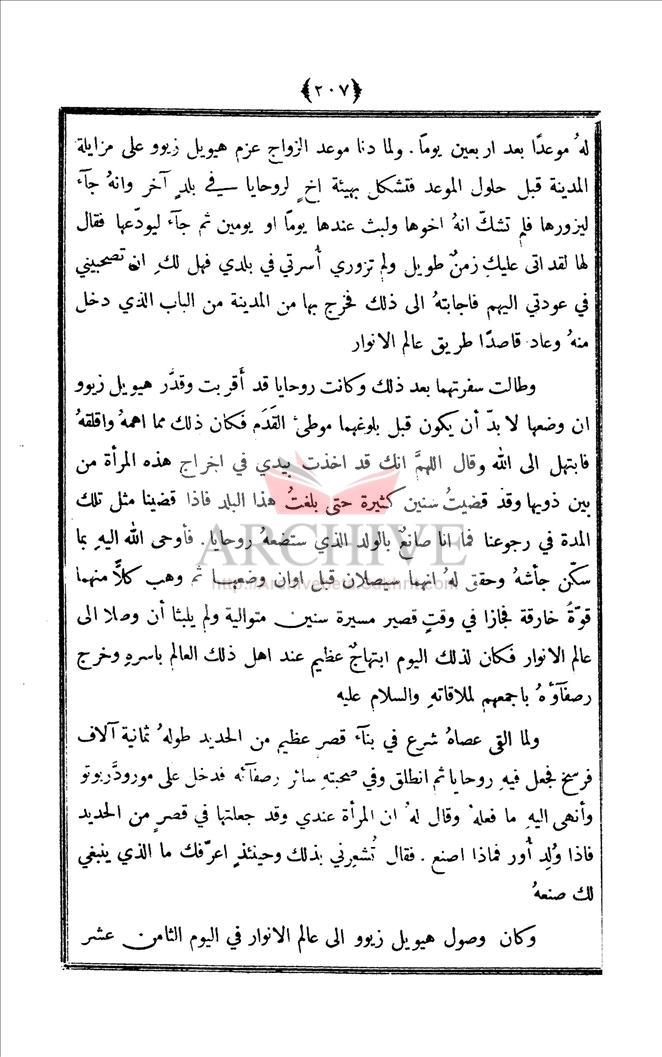 ﴿٢٠٧﴾
لهُ موعدًا بعد اربعين يومًا. ولما دنا موعد الزواج عزم هيويل زيوو على مزايلة
المدينة قبل حلول الموعد فتشكل بهيئة اخٍ لروحايا في بلدٍ آخر وانهُ جآء
ليزورها فلم تشكّ انهُ اخوها ولبث عندها يومًا او يومين ثم جآء ليودّعها فقال
لها لقد اتى عليكِ زمنٌ طويل ولم تزوري أسرتي في بلدي فهل لكِ ان تصحبيني
في عودتي اليهم فاجابتهُ الى ذلك فخرج بها من المدينة من الباب الذي دخل
منهُ وعاد قاصدًا طريق عالم الانوار
وطالت سفرتهما بعد ذلك وكانت روحايا قد أقربت وقدَّر هيويل زيوو
ان وضعها لا بدّ أن يكون قبل بلوغهما موطئ القَدَم فكان ذلك مما اهمهُ واقلقهُ
فابتهل الى الله وقال اللهمَّ انك قد اخذت بيدي في اخراج هذه المرأة من
بين ذويها وقد قضيتُ سنين كثيرة حتى بلغتُ هذا البلد فاذا قضينا مثل تلك
المدة في رجوعنا فما انا صانعٌ بالولد الذي ستضعهُ روحايا. فأوحى الله اليهِ بما
سكّن جأشهُ وحقق لهُ انهما سيصلان قبل اوان وضعها ثم وهب كلاًّ منهما
قوّةً خارقة فجازا في وقتٍ قصير مسيرة سنين متوالية ولم يلبثا أن وصلا الى
عالم الانوار فكان لذلك اليوم ابتهاجٌ عظيم عند اهل ذلك العالم باسرهِ وخرج
رصفآؤهُ باجمعهم لملاقاتهِ والسلام عليه
ولما القى عصاهُ شرع في بنآء قصرٍ عظيم من الحديد طولهُ ثمانية آلاف
فرسخ فجعل فيهِ روحايا ثم انطلق وفي صحبتهِ سائر رصفآئهِ فدخل على مورودَّربوتو
وأنهى اليهِ ما فعلهُ وقال لهُ ان المرأة عندي وقد جعلتها في قصرٍ من الحديد
فاذا وُلِد أور فماذا اصنع. فقال تُشعِرني بذلك وحينئذٍ اعرّفك ما الذي ينبغي
لك صنعهُ
وكان وصول هيويل زيوو الى عالم الانوار في اليوم الثامن عشر
ARCHIVE